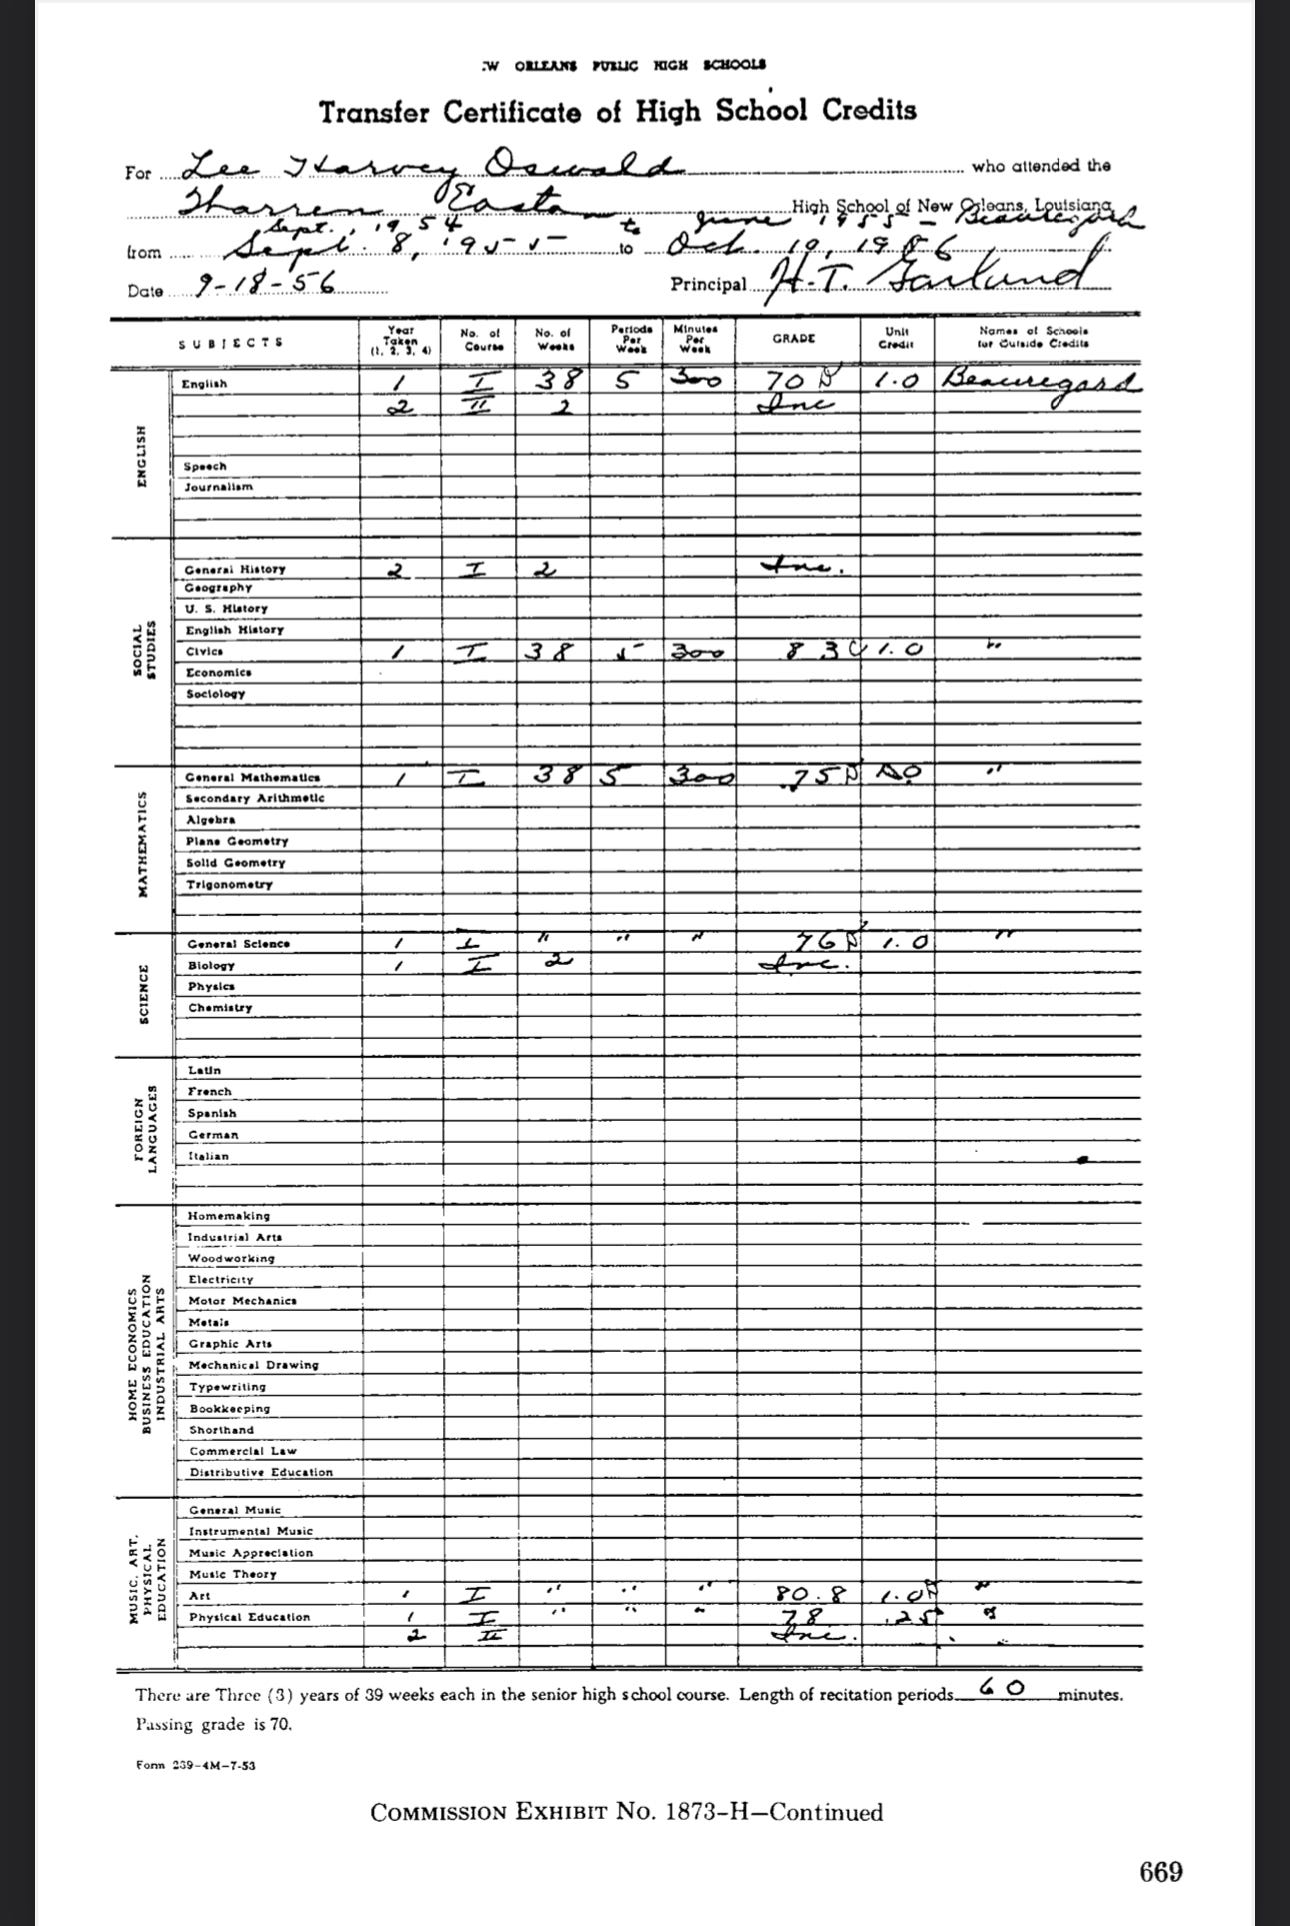 :W ORLEANS PUBLIC HIGH SCHOOLS
Transfer Certificate of High School Credits
For Lee Harvey Oswald who attended the
Warren Easton High School of New Orleans, Louisiana
Sept., 1954 to June 1955 – Beauregard
from Sept. 8, 1955 to Oct. 10, 1956
Date 9-18-56 Principal H. T. Garland
SUBJECTS Year Taken (1, 2, 3, 4) No. of Course No. of Weeks Periods Per Week Minutes Per Week GRADE Unit Credit Names of Schools for Outside Credits
ENGLISH
English 1 I 38 5 300 70 D 1.0 Beauregard
2 II 2 Inc
Speech
Journalism
SOCIAL STUDIES
General History 2 I 2 Inc.
Geography
U. S. History
English History
Civics 1 I 38 5 300 83 C 1.0 "
Economics
Sociology
MATHEMATICS
General Mathematics 1 I 38 5 300 75 D "
Secondary Arithmetic
Algebra
Plane Geometry
Solid Geometry
Trigonometry
SCIENCE
General Science 1 I " " " 76 D 1.0 "
Biology 1 I 2 Inc.
Physics
Chemistry
FOREIGN LANGUAGES
Latin
French
Spanish
German
Italian
HOME ECONOMICS BUSINESS EDUCATION INDUSTRIAL ARTS
Homemaking
Industrial Arts
Woodworking
Electricity
Motor Mechanics
Metals
Graphic Arts
Mechanical Drawing
Typewriting
Bookkeeping
Shorthand
Commercial Law
Distributive Education
MUSIC, ART, PHYSICAL EDUCATION
General Music
Instrumental Music
Music Appreciation
Music Theory
Art 1 I " " " 80.8 1.0 "
Physical Education 1 I " " " 78 .25 "
2 II Inc.
There are Three (3) years of 39 weeks each in the senior high school course. Length of recitation periods 60 minutes.
Passing grade is 70.
Form 239-4M-7-53
COMMISSION EXHIBIT No. 1873-H—Continued
669